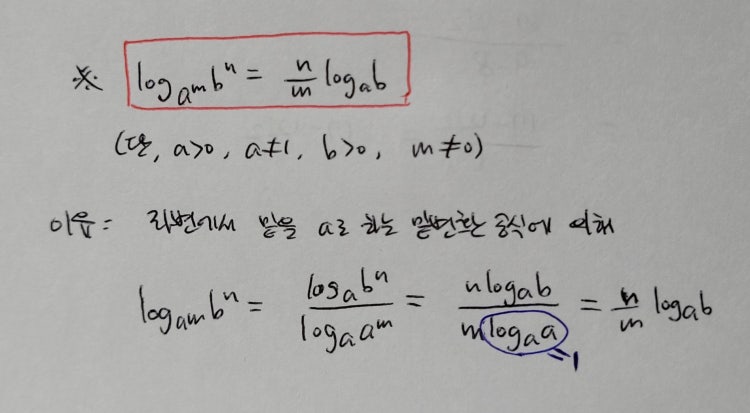 ※ log_{a^m} b^n = n/m log_a b
(단, a>0, a≠1, b>0, m≠0)
이유 : 좌변에서 밑을 a로 하는 밑변환 공식에 의해
log_{a^m} b^n = log_a b^n / log_a a^m = n log_a b / m log_a a = n/m log_a b
=1